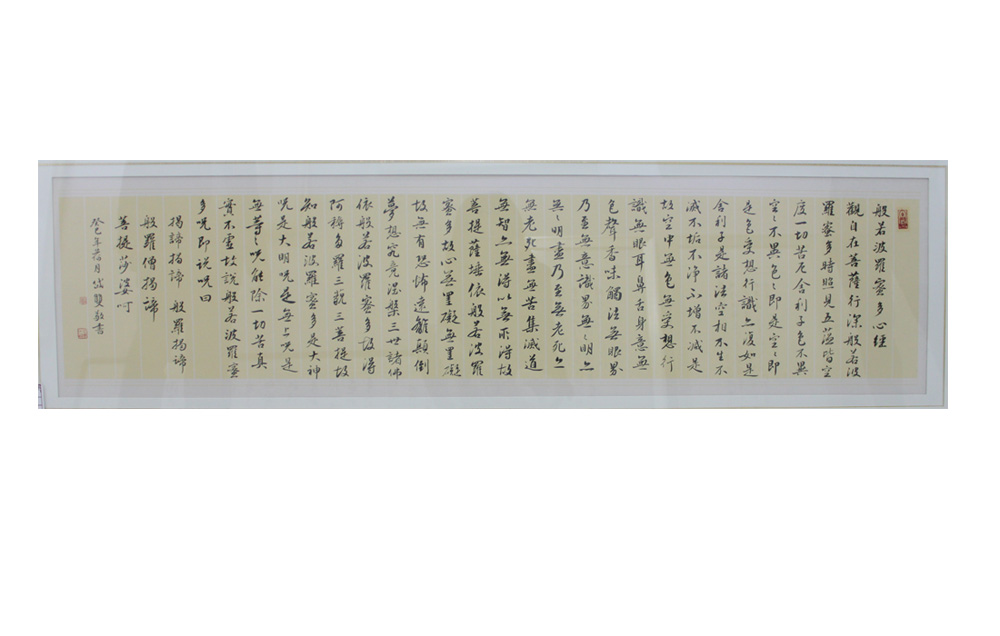 般若波羅蜜多心經
觀自在菩薩行深般若波
羅蜜多時照見五蕴皆空
度一切苦厄舍利子色不異
空〻不異色〻即是空〻即
是色受想行識亦復如是
舍利子是諸法空相不生不
滅不垢不淨不增不減是
故空中無色無受想行
識無眼耳鼻舌身意無
色聲香味觸法無眼界
乃至無意識界無〻明亦
無〻明盡乃至無老死亦
無老死盡無苦集滅道
無智亦無得以無所得故
菩提薩埵依般若波羅
蜜多故心無罣礙無罣礙
故無有恐怖遠離顛倒
夢想究竟涅槃三世諸佛
依般若波羅蜜多故得
阿耨多羅三藐三菩提故
知般若波羅蜜多是大神
咒是大明咒是無上咒是
無等〻咒能除一切苦真
實不虛故說般若波羅蜜
多咒即說咒曰
揭諦揭諦 般羅揭諦
般羅僧揭諦
菩提莎婆呵
癸巳年 月 敬書